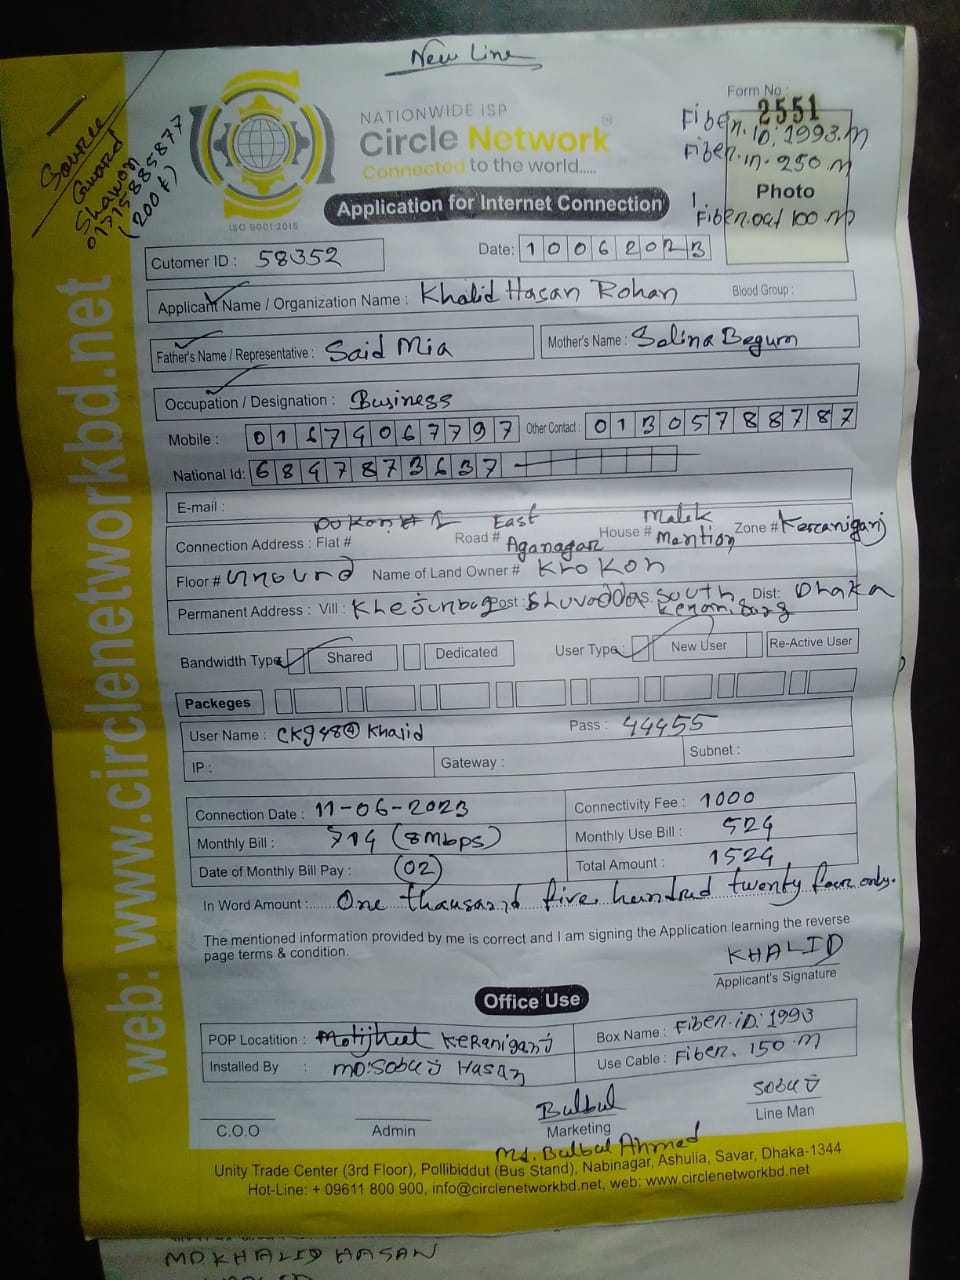 New Line
Source
Shawon
01715885877
(200 ৳)
NATIONWIDE ISP
Circle Network
Connected to the world.....
ISO 9001:2015
Form No :
2551
Fiber. ID: 1993.m
Fiber.in. 250 m
Photo
Fiber.out 100 m
Application for Internet Connection
Cutomer ID : 58352
Date: 10062023
Applicant Name / Organization Name : Khalid Hasan Rohan Blood Group :
Father's Name / Representative : Said Mia Mother's Name : Selina Begum
Occupation / Designation : Business
Mobile : 01674067797 Other Contact : 01305788787
National Id: 6847873637
E-mail :
Connection Address : Flat # Dokan # 1 Road # East Aganagar House # Malek Mantion Zone # Keraniganj
Floor # Ground Name of Land Owner # Khokon
Permanent Address : Vill : Khejurbag Post : Shuvadda South Keraniganj Dist: Dhaka
Bandwidth Type Shared Dedicated User Type: New User Re-Active User
Packeges
User Name : ckg48@khalid Pass : 44455
IP : Gateway : Subnet :
Connection Date : 11-06-2023 Connectivity Fee : 1000
Monthly Bill : 714 (8Mbps) Monthly Use Bill : 524
Date of Monthly Bill Pay : (02) Total Amount : 1524
In Word Amount : One thausand five hundred twenty four only.
The mentioned information provided by me is correct and I am signing the Application learning the reverse
page terms & condition.
KHALID
Applicant's Signature
Office Use
POP Locatition : Motijheel Keraniganj Box Name : Fiber.iD: 1993
Installed By : MD: Sobuj Hasan Use Cable : Fiber. 150.m
C.O.O
Admin
Bulbul
Marketing
Md. Bulbul Ahmed
Sobuj
Line Man
Unity Trade Center (3rd Floor), Pollibiddut (Bus Stand), Nabinagar, Ashulia, Savar, Dhaka-1344
Hot-Line: + 09611 800 900, info@circlenetworkbd.net, web: www.circlenetworkbd.net
web: www.circlenetworkbd.net
MD.KHALID HASAN